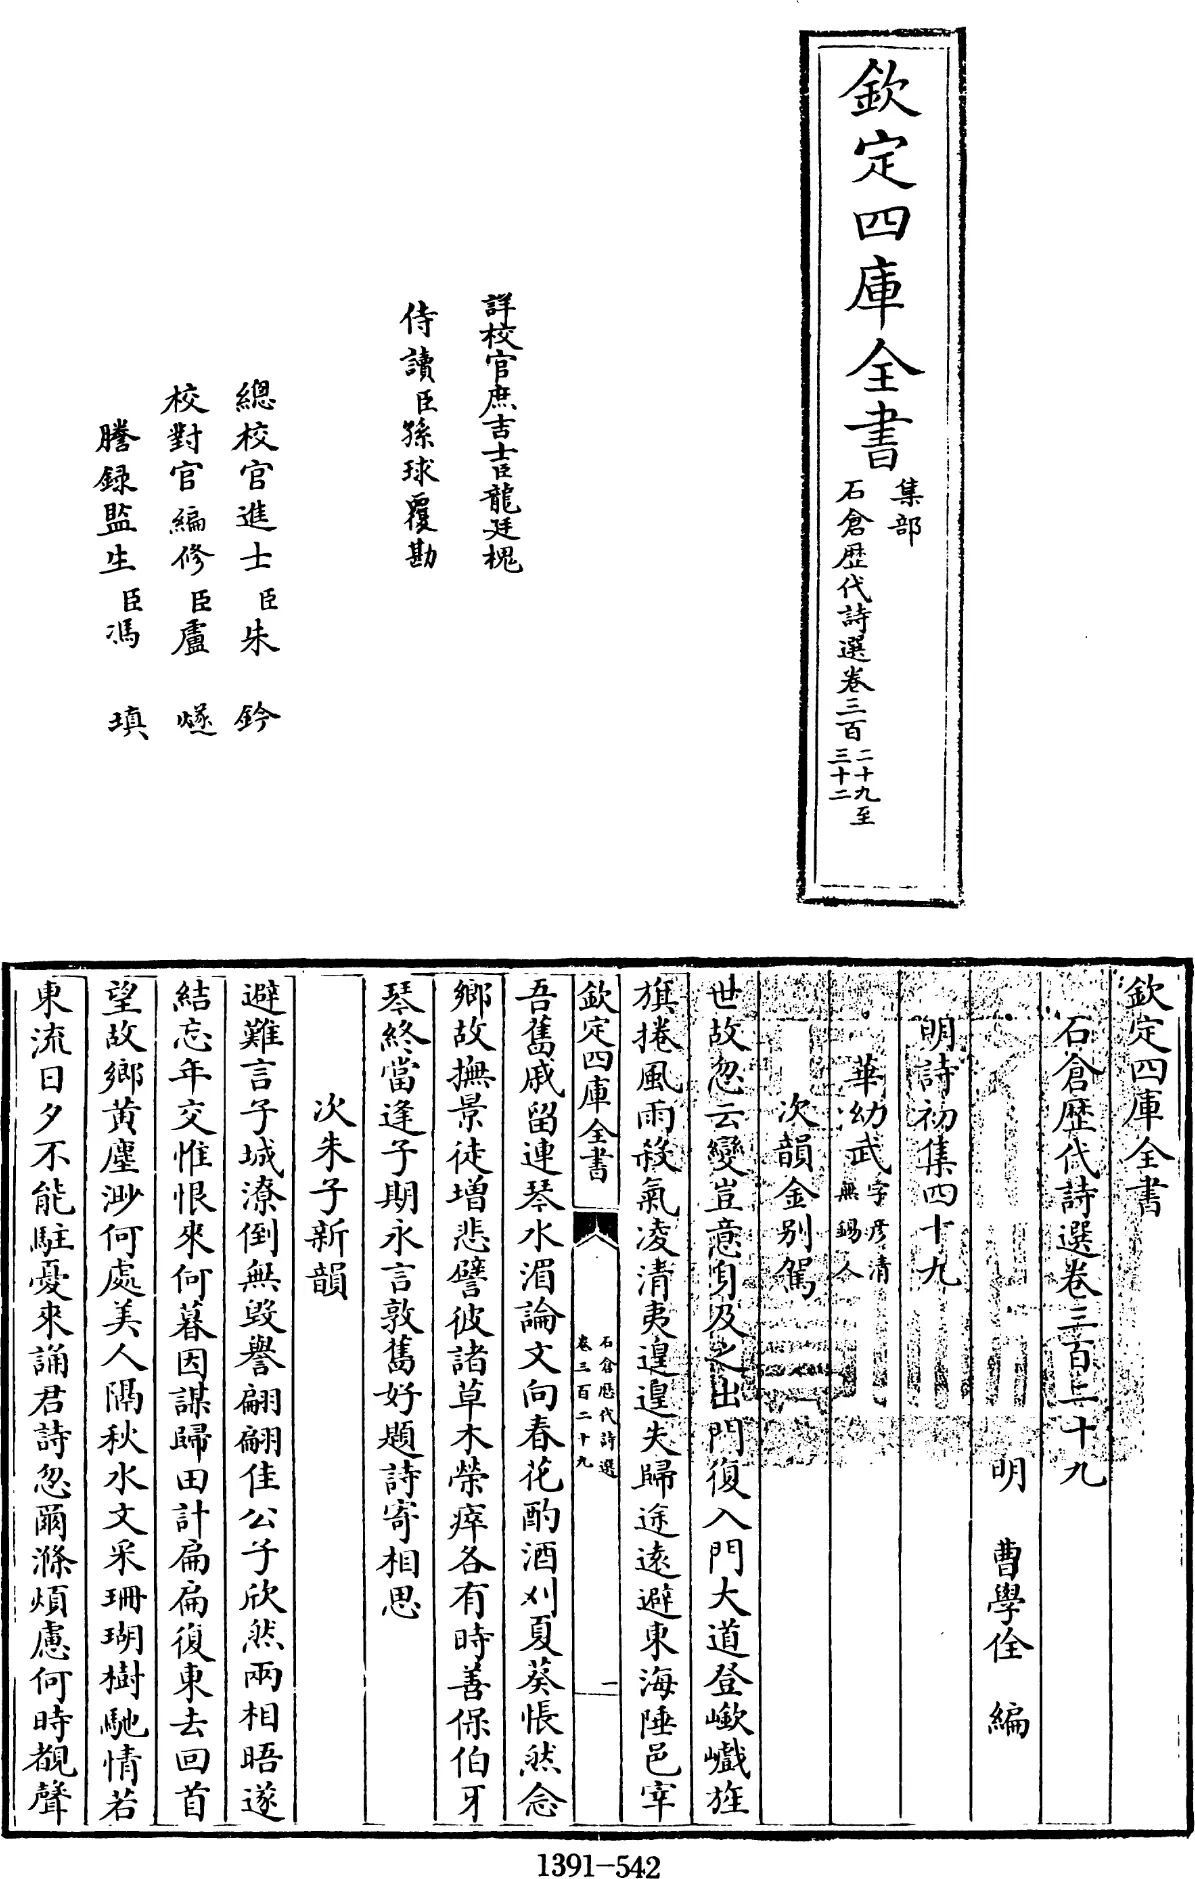 欽定四庫全書
集部
石倉歴代詩選卷三百
二十九至
三十二
詳校官庶吉士臣龍廷槐
侍讀臣孫球覆勘
總校官進士臣朱鈐
校對官編修臣盧燧
謄録監生臣馮瑱
欽定四庫全書
石倉歴代詩選卷三百二十九
明 曹學佺 編
明詩初集四十九
華幼武
字彦清
無錫人
次韻金别駕
世故忽云變豈意身及之出門復入門大道登嶔巇旌
旗捲風雨殺氣凌清夷遑遑失歸途逺避東海陲邑宰
欽定四庫全書
石倉歴代詩選
卷三百二十九
一
吾舊戚留連琴水湄論文向春花酌酒刈夏葵悵然念
鄉故撫景徒増悲譬彼諸草木榮瘁各有時善保伯牙
琴終當逢子期永言敦舊好題詩寄相思
次朱子新韻
避難言子城潦倒無毁譽翩翩佳公子欣然兩相晤遂
結忘年交惟恨來何暮因謀歸田計扁扁復東去回首
望故鄉黄塵渺何處美人隔秋水文采珊瑚樹馳情若
東流日夕不能駐憂來誦君詩忽爾滌煩慮何時覩聲
1391-542